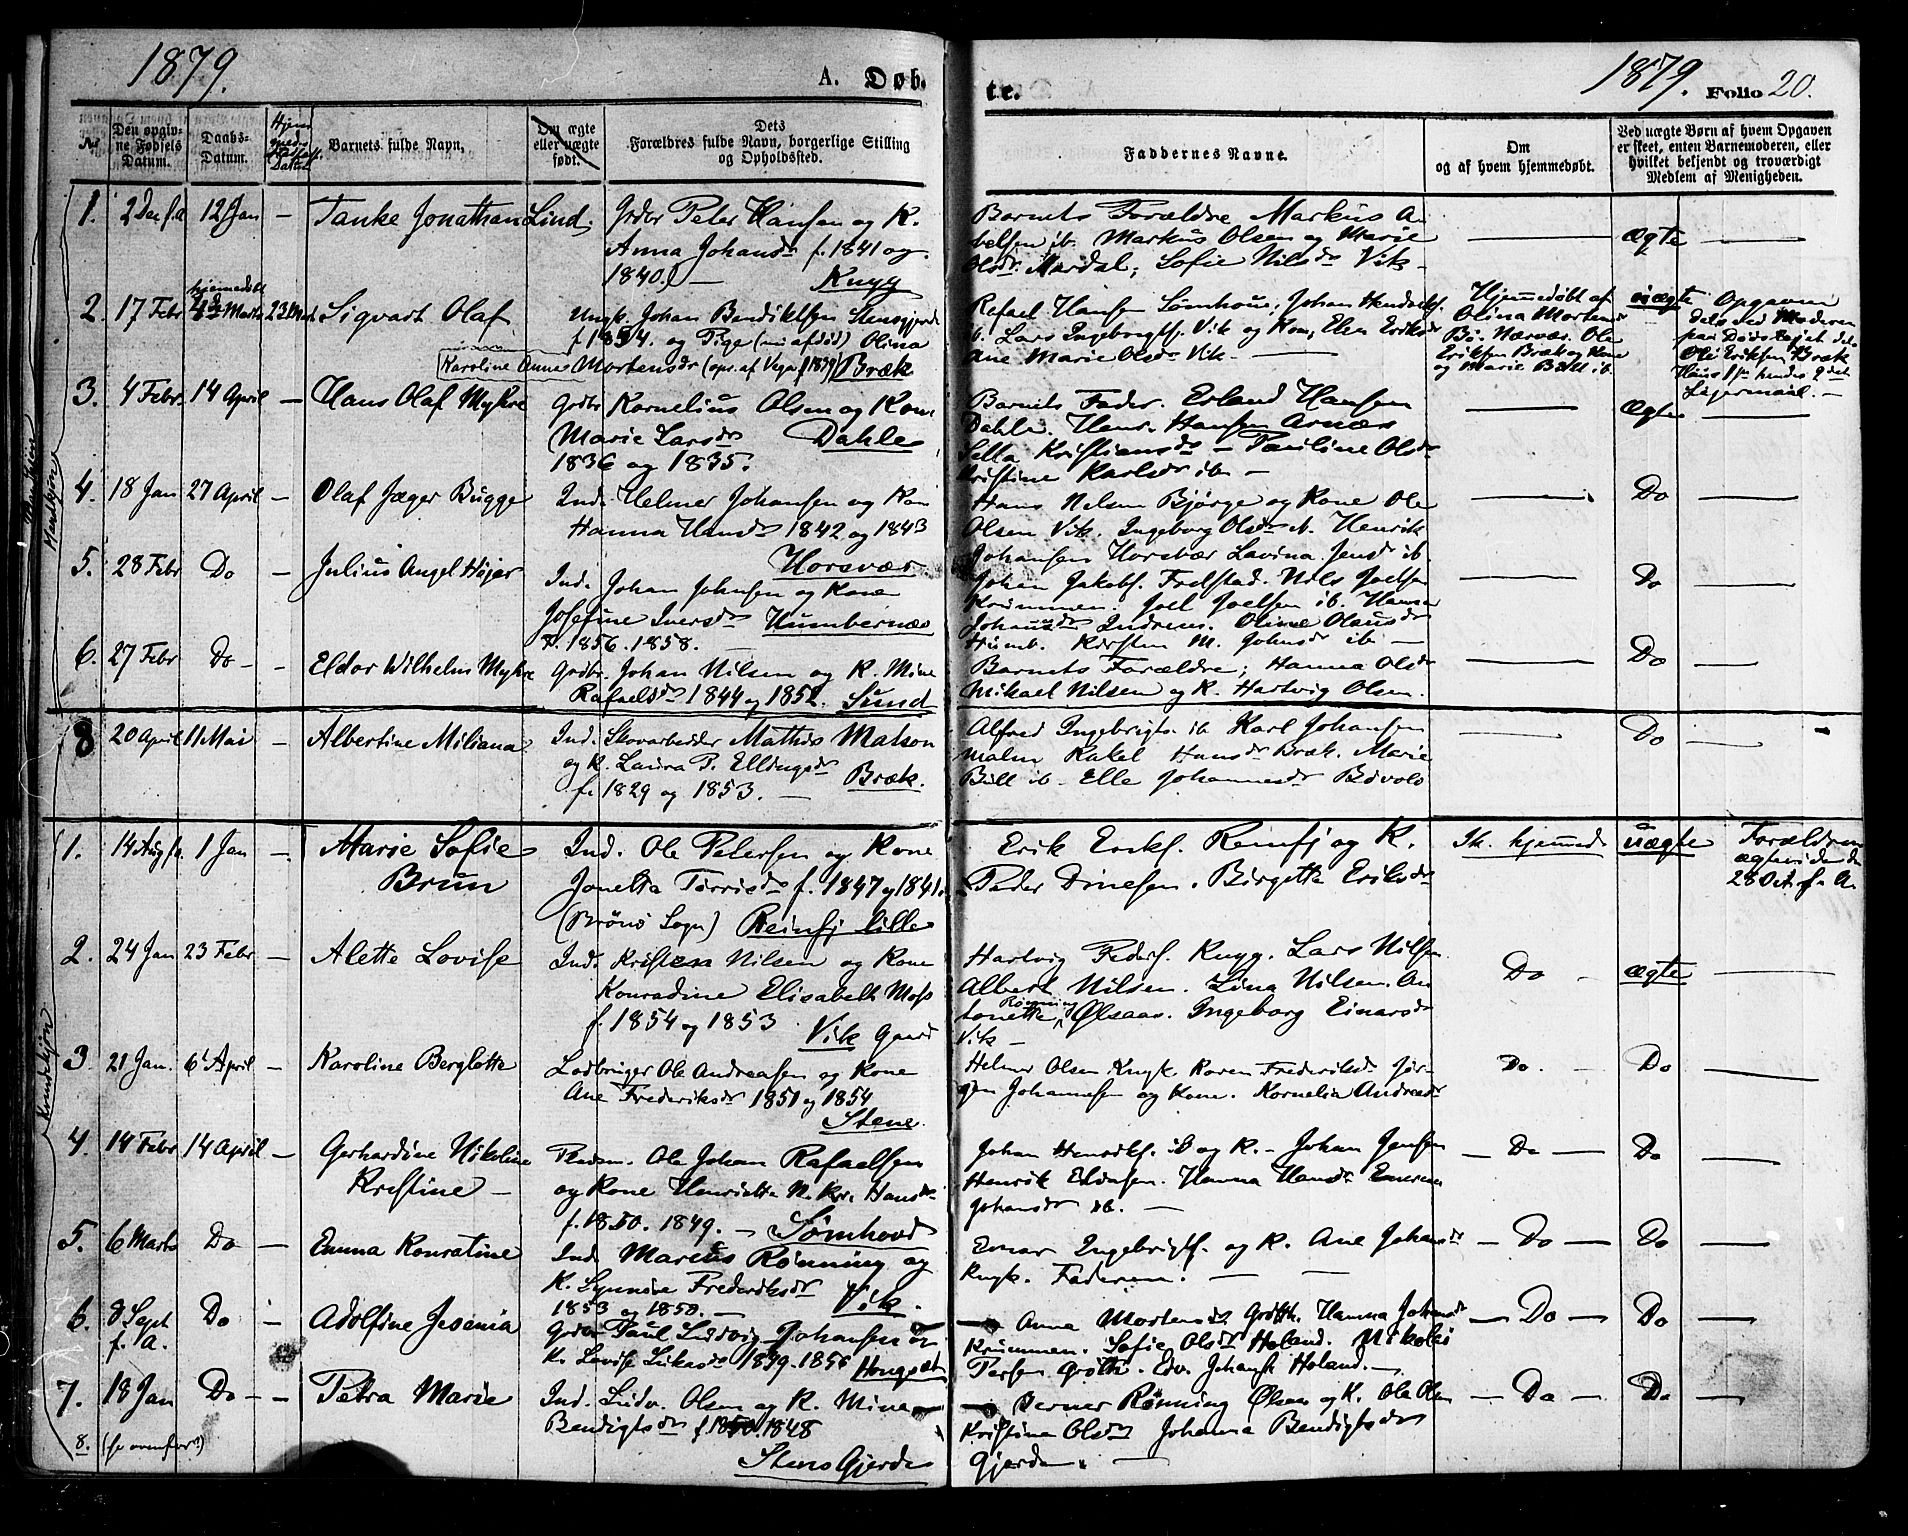 1879.
A. Døb-
te.
1879. Folio 20.
No
Den opgiv-
ne Fødsels
Datum.
Daabs-
Datum.
Barnets fulde Navn,
Om ægte
eller uægte
født.
Dets
Forældres fulde Navn, borgerlige Stilling
og Opholdssted.
Faddernes Navne.
Om
og af hvem hjemmedøbt.
Ved uægte Børn af hvem Opgaven
er skeet, enten Barnemoderen, eller
hvilket bekjendt og troværdigt
Medlem af Menigheden.
Mandkjøn
1. 2 Dec f.a. 12 Jan — Tanke Jonathan Lind.
Grdbr Peter Hansen og K.
Anna Johansdr f. 1841 og
1840. —
Barnets Forældre, Markus
ib. Markus Olsen og Marie
Olsdr Mardal; Sofie Nilsdr Vik —
ægte
2. 17 Febr hjemmedøbt Marts 23 Mai Sigvart Olaf
Ungk. Johan Bendiktsen Stensgjerde
f 1854. og Pige (nu afdød) Olina
Karoline Anna Mortensdr (opr. af Vega f 1839) Bræk
Rafael Hansen Sømhovd; Johan Hendriks.
ib. Lars Ingebrigts. Vik og Kone, Elen Eriksdr
Ane Marie Olsdr Vik —
Hjemmedøbt af
Olina Mortensdr
Bø. Nærvær. Ole
Eriksen Bræk og Kone
og Marie Bull ib.
uægte
Opgaven
dels ved Moderen
paa Dødsleiet dels
Ole Eriksen Bræk
Hans 1ste hendes 2det
Leiermaal. —
3. 4 Febr. 14 April — Hans Olaf Mykre
Grdbr Kornelius Olsen og Kone
Marie Larsdr Dahle
1836 og 1835.
Barnets Fader. Erland Hansen
Dahle. Hansen Arnæs
Kristiansdr — Pauline Olsdr
Kristine Karlsdr ib —
Ægte
4. 18 Jan 27 April — Olaf Jæger Bugge
Ind. Helmer Johansen og Kone
Hanna Hansdr 1842 og 1843
Horsvær
Hans Nilsen Bjørge og Kone Ole
Olsen Vik. Ingeborg Olsdr ib. Henrik
Johansen Horsvær Lavina Jensdr ib
Do
5. 28 Febr Do — Julius Angel Højer
Ind. Johan Johnsen og Kone
Josefine Iversdr Humbernæs
f. 1856. 1858. —
Johan Jakobs. Fredstad. Nils Joelsen
Krummen. Joel Joelsen ib. Hanna
Johansdr Indrem. Oline Olausdr
Humb. Kirsten M. Johnsdr ib —
Do
6. 27 Febr Do — Eldor Wilhelm Mykre
Grdbr. Johan Nilsen og K. Mine
Rafaelsdr 1844 og 1852. Sund
Barnets Forældre; Hanna Olsdr
Mikael Nilsen og K. Hartvig Olsen.
Do
8 20 April 11 Mai — Albertine Miliana
Ind. Skovarbeider Mathis Matson
og K. Laura P. Ellingsdr
f. 1829 og 1853. — Bræk.
Alfred Ingebrigts. ib. Karl Johansen
Malm Rakel Hansdr Bræk. Marie
Bull ib — Elle Johannesdr Bøvold
Do
Kvindekjøn
1. 14 Aug f.a. 1 Jan — Marie Sofie
Brun
Ind. Ole Petersen og Kone
Jonetta Torrisdr f. 1847 og 1841.
(Brønø Sogn) Reinfj lille
Erik Eriks. Reinfj og K.
Peder Dinesen. Birgitte Eriksdr
Ik. hjemmed
uægte
Forældrene
ægteviede
28 Oct f. A.
2. 24 Jan 23 Febr — Alette Lovise
Ind. Kristen Nilsen og Kone
Konradine Elisabeth Moss
f. 1854 og 1853. Vik Gaard
Hartvig Peders. Knyg. Lars Nilsen
Albert Nilsen. Lina Nilsen. An-
tonette Rønning Ølsaas. Ingeborg Einarsdr
Vik —
Do — ægte
3 21 Jan. 6 April — Karoline Berglotte
Ladbruger Ole Andreasen og Kone
Ane Frederiksdr 1851 og 1854
Stene.
Helmer Olsen Knyk. Karen Frederiksdr Jør-
gen Johannesen og Kone. Kornelia Andreasdr
Do. — Do
4. 14 Febr 14 April — Gerhardine Nikoline
Kristine —
Ole Johan Rafaelsen
og Kone Henriette N. Kr. Hansdr
f. 1850. 1849. — Sømhovd
Johan Henriks. ib og K. — Johan Jensen
Henrik Hanna Hansdr
Johansdr ib. —
— Do — Do
5. 6 Marts Do — Emma Konratine
Ind. Marcus Rønning og
K. Synnøve Frederiksdr
1853 og 1850. — Vik.
Einar Ingebrigts. og K. Ane Johansdr
Knyk. Faderen. —
— Do — Do
6. 8 Sept
f. A.
Do — Adolfine Jesenia
Grdbr Paul Ludvig Johansen og
K. Lovise Lukasdr 1849. 1856 Hongset
— Anna Mortensdr Grøtth. Hanna Johansdr
Krummen. Sofie Olsdr Holand. Nikolai
Grøtth. Edv. Johans. Holand. —
— Do — Do
7. 18 Jan Do — Petra Marie
Ind. Ludv. Olsen og K. Mine
Bendigtsdr f. 1850. 1848
Stens Gjerde
— Berner Rønning Ølsaas og K. Ole Olsen
Kristine Olsdr Johanna Bendigtsdr
Gjerde. —
— Do — Do
8. (se ovenfor!)